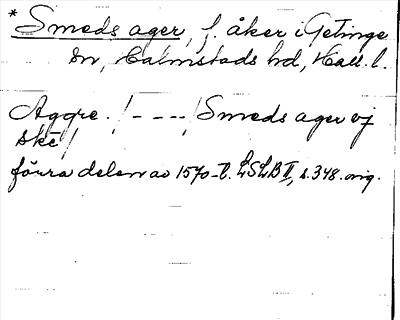 * Smeds ager, f. åker i Getinge
sn, Halmstads hd, Hall. l.
Aggre. /- - - -/ Smeds ager oj
ske /
förra delen av 1570-t. LSLB II, s. 348. orig.